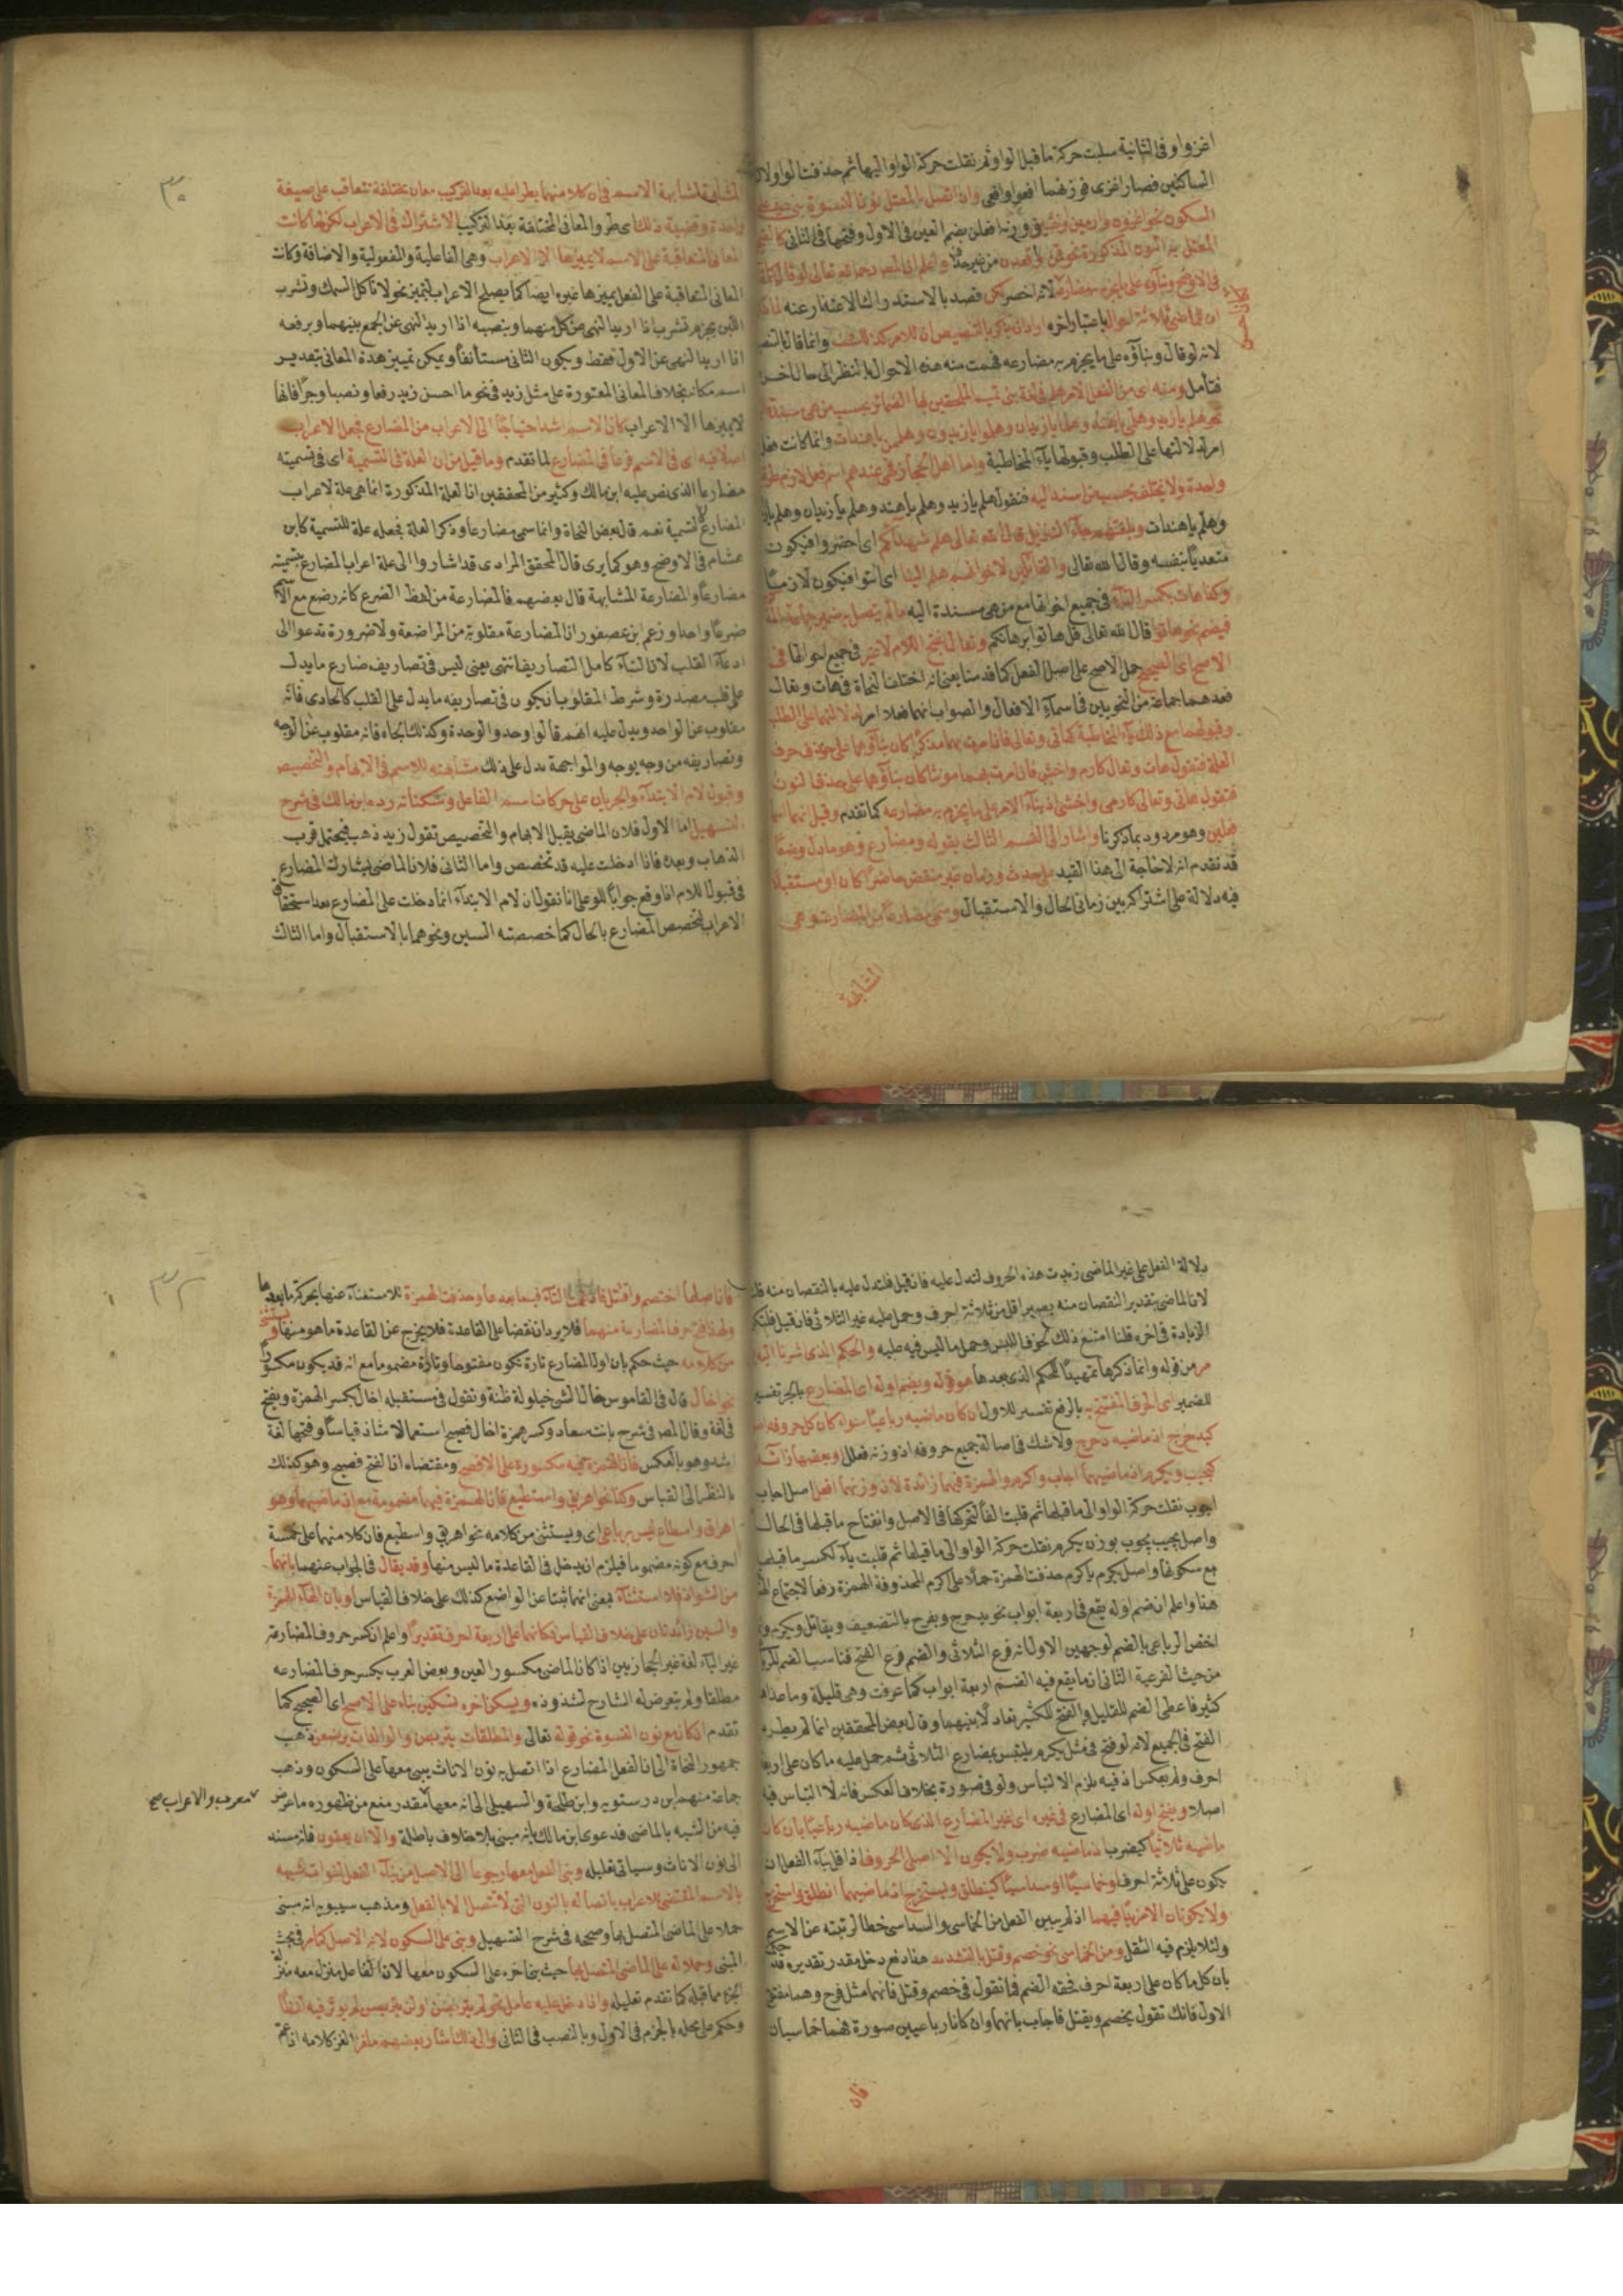 اغزووا وفي الثانية سلبت حركة ما قبل الواو ثم نقلت حركة الواو اليها ثم حذفت الواو
الساكنين فصار اغزى فوزنهما افعوا وافعى وان اتصل بالمعتل نون النسوة بنى
السكون نحو اغزون وارمين واخشين ووزنه افعلن بضم العين في الاول وفتحها في الثاني
المعتل نحو من غير حذف واعلم ان المص رحمه الله تعالى لو قال
في الاوضح وبناؤه على ما يجزم به مضارعه لانه اخصر لكن قصد بالاستدراك الاعتذار عنه
ان للماضي ثلاثة احوال باعتبار اخره اراد ان يذكر بالتنصيص ان للامر كذلك وانما قال
لانه لو قال وبناؤه على ما يجزم به مضارعه فهمت منه هذه الاحوال بالنظر الى حال اخر
فتأمل ومنه اى من الفعل الامر هلم في لغة بنى تميم الملحقين بها الضمائر بحسب من هى مسندة
نحو هلم يا زيد وهلمى يا هند وهلما يا زيدان وهلموا يا زيدون وهلمن يا هندات وانما كانت فعل
امر لدلالتها على الطلب وقبولها ياء المخاطبة واما اهل الحجاز فهى عندهم اسم فعل لازم طريقة
واحدة ولا يختلف بحسب من اسند اليه فتقول هلم يا زيد وهلم يا هند وهلم يا زيدان وهلم يا
وهلم يا هندات وبلغتهم جاء التنزيل قال الله تعالى هلم شهداءكم اى احضروا فيكون
متعديا بنفسه وقال الله تعالى والقائلين لاخوانهم هلم الينا اى ائتوا فيكون لازما
وكذا هات بكسر التاء في جميع احوالها مع من هى مسندة اليه ما لم يتصل به ضمير جماعة
فيضم نحو هاتوا قال الله تعالى قل هاتوا برهانكم وتعال بفتح اللام لا غير في جميع احوالها في
الاصح اى الصحيح حمل الاصح على اصل الفعل كما قدمنا يعنى انه اختلف النحاة في هات وتعال
فعدهما جماعة من النحويين في اسماء الافعال والصواب انهما فعلا امر لدلالتهما على الطلب
وقبولهما مع ذلك ياء المخاطبة كهاتى وتعالى فاذا امرت بهما مذكرا كان بناؤهما على حذف حرف
العلة فتقول هات وتعال كارم واخش فاذا امرت بهما مونثا كان بناؤهما على حذف النون
فتقول هاتى وتعالى كارمى واخشى اذ بناء الامر على ما يجزم به مضارعه كما تقدم وقيل انهما اسما
فعلين وهو مردود بما ذكرنا واشار الى القسم الثالث بقوله ومضارع وهو ما دل وضعا
قد تقدم انه لا حاجة الى هذا القيد على حدث وزمان غير منقض حاضرا كان او مستقبلا
فيه دلالة على اشتراكه بين زمانى الحال والاستقبال وسمى مضارعا من المضارعة وهى
المشابهة
٣٠
المشابهة لمشابهة الاسم في ان كلا منهما يطرا عليه بعد التركيب معان مختلفة تتعاقب على صيغة
واحدة وقضية ذلك اى طرو المعانى المختلفة بعد التركيب الاشتراك في الاعراب لكن لما كانت
المعانى المتعاقبة على الاسم لا يميزها الا الاعراب وهى الفاعلية والمفعولية والاضافة وكانت
المعانى المتعاقبة على الفعل يميزها غيره ايضا كما يصلح الاعراب لتمييز نحو لا تاكل السمك وتشرب
اللبن يجزم تشرب اذا اريد النهى عن كل منهما وبنصبه اذا اريد النهى عن الجمع بينهما وبرفعه
اذا اريد النهى عن الاول فقط ويكون الثانى مستأنفا ويمكن تمييز هذه المعانى بتقدير
اسم مكانه بخلاف المعانى المعتورة على مثل زيد في نحو ما احسن زيد رفعا ونصبا وجرا فانها
لا يميزها الا الاعراب كان الاسم اشد احتياجا الى الاعراب من المضارع فجعل الاعراب
اصلا فيه اى في الاسم فرعا في المضارع لما تقدم وما قيل من ان العلة في التسمية اى في تسميته
مضارعا الذى نص عليه ابن مالك وكثير من المحققين ان العلة المذكورة انما هى علة لاعراب
المضارع لا لتسمية نعم قال بعض النحاة وانما سمى مضارعا وذكر العلة فجعله علة للتسمية كابن
هشام في الاوضح وهو كما يرى قال المحقق المرادى قد اشاروا الى علة اعراب المضارع بتسميته
مضارعا والمضارعة المشابهة قال بعضهم فالمضارعة من لفظ الضرع كانه رضع مع الاسم
ضرعا واحدا وزعم ابن عصفور ان المضارعة مقلوبة من المراضعة ولا ضرورة تدعوا الى
ادعاء القلب لان البناء كامل التصاريف انتهى يعنى ليس في تصاريف ضارع ما يدل
على قلب مصدره وشرط المقلوب ان يكون في تصاريفه ما يدل على القلب كالحادى فانه
مقلوب عن الواحد ويدل عليه انهم قالوا وحد والوحدة وكذلك الجاه فانه مقلوب عن الوجه
وتصاريفه من وجه يوجه والمواجهة يدل على ذلك مشابهته للاسم في الابهام والتخصيص
وقبول لام الابتداء والجريان على حركات اسم الفاعل وسكناته رده ابن مالك في شرح
التسهيل اما الاول فلان الماضى يقبل الابهام والتخصيص تقول زيد ذهب فيحتمل قرب
الذهاب وبعده فاذا ادخلت عليه قد تخصص واما الثانى فلان الماضى يشارك المضارع
في قبول اللام اذا وقع جوابا للو على انا نقول ان لام الابتداء انما دخلت على المضارع بعد استحقاق
الاعراب لتخصص المضارع بالحال كما خصصته السين ونحوها بالاستقبال واما الثالث
دلالة الفعل على غير الماضى زيدت هذه الحروف لتدل عليه فان قيل فلتدل عليه بالنقصان منه قلت
لان الماضى بتقدير النقصان منه يصير اقل من ثلاثة احرف وحمل عليه غير الثلاثى فان قيل فلتكن
الزيادة في اخره قلنا امتنع ذلك لخوف اللبس وحمل ما ليس فيه عليه والحكم الذى اشرنا اليه
مر من قوله وانما ذكرها تمهيدا للحكم الذى بعدها هو قوله ويضم اوله اى المضارع بالجر تفسير
للضمير اى الحرف المفتتح به بالرفع تفسير للاول ان كان ماضيه رباعيا سواء كان كل حروفه
كيدحرج اذ ماضيه دحرج ولا شك في اصالة جميع حروفه اذ وزنه فعلل او بعضها زائد
كيجيب ويكرم اذ ماضيهما اجاب واكرم والهمزة فيهما زائدة لان وزنهما افعل اصل اجاب
اجوب نقلت حركة الواو الى ما قبلها ثم قلبت الفا لتحركها في الاصل وانفتاح ما قبلها في الحال
واصل يجيب يجوب بوزن يكرم نقلت حركة الواو الى ما قبلها ثم قلبت ياء لكسر ما قبلها
مع سكونها واصل يكرم يأكرم حذفت الهمزة حملا على اكرم المحذوفة الهمزة رفعا لاجتماع
هذا واعلم ان ضم اوله يقع في اربعة ابواب نحو يدحرج ويفرح بالتضعيف ويقاتل ويكرم
اختص الرباعى بالضم لوجهين الاول انه فرع الثلاثى والضم فرع الفتح فناسب الضم
من حيث الفرعية الثانى ان ما يقع فيه الضم اربعة ابواب كما عرفت وهى قليلة وما عداها
كثير فاعطى الضم للقليل والفتح للكثير تعادلا بينهما وقال بعض المحققين انما لم يطرد
الفتح في الجميع لانه لو فتح في مثل يكرم يلتبس بمضارع الثلاثى ثم حمل عليه ما كان على اربعة
احرف ولم يعكس اذ فيه يلزم الالتباس ولو في صورة بخلاف العكس فانه لا التباس فيه
اصلا ويفتح اوله اى المضارع في غيره اى غير المضارع الذى كان ماضيه رباعيا بان كان
ماضيه ثلاثيا كيضرب اذ ماضيه ضرب ولا يكون الا اصلى الحروف اذ اقل بناء الفعل ان
يكون على ثلاثة احرف او خماسيا او سداسيا كينطلق ويستخرج اذ ماضيهما انطلق واستخرج
ولا يكونان الا مزيدا فيهما اذ لم يبن الفعل من الخماسى والسداسى خطا لرتبته عن الاسم
ولئلا يلزم فيه الثقل ومن الخماسى نحو خصم وقتل بالتشديد هذا دفع دخل مقدر تقديره
بان كل ما كان على اربعة احرف فحقه الضم فما تقول في خصم وقتل فانهما مثل فرح وهما مفتوح
الاول فانك تقول يخصم ويقتل فاجاب بانهما وان كانا رباعيين صورة فهما خماسيان
فان
٣٢
فان اصلهما اختصم واقتتل فادغمت التاء فيما بعدها وحذفت الهمزة للاستغناء عنها بحركة ما بعدها
ولهذا فتح حرف المضارعة منهما فلا يرد ان نقضا على القاعدة فلا يخرج عن القاعدة ما هو منها ويستثنى
من كلامه حيث حكم بان اول المضارع تارة تكون مفتوحا وتارة مضموما مع انه قد يكون مكسورا
نحو اخال قال في القاموس خال الشئ خيلولة ظنه وتقول في مستقبله اخال بكسر الهمزة ويفتح
في لغة وقال المص في شرح بانت سعاد وكسر همزة اخال فصيح استعمالا شاذ قياسا وفتحها لغة
اسد وهو بالعكس فان الهمزة فيه مكسورة على الافصح ومقتضاه ان الفتح فصيح وهو كذلك
بالنظر الى القياس وكذا نحو اهريق واسطيع فان الهمزة فيهما مضمومة مع ان ماضيهما وهو
اهراق واسطاع ليس برباعى اى ويستثنى من كلامه نحو اهريق واسطيع فان كلا منهما على خمسة
احرف مع كونه مضموما فيلزم ان يدخل في القاعدة ما ليس منها وقد يقال في الجواب عنهما بانهما
من الشواذ فلا استثناء بمعنى انهما ثبتا عن الواضع كذلك على خلاف القياس او بان الهاء الهمزة
والسين زائدتان على خلاف القياس فكانهما على اربعة احرف تقديرا واعلم ان كسر حروف المضارعة
غير الياء لغة غير الحجازيين اذا كان الماضى مكسور العين وبعض العرب يكسر حرف المضارعه
مطلقا ولم يتعرض له الشارح لشذوذه ويسكن اخره تسكين بناء على الاصح اى الصحيح كما
تقدم اذ كان مع نون النسوة نحو قوله تعالى والمطلقات يتربصن والوالدات يرضعن ذهب
جمهور النحاة الى ان الفعل المضارع اذا اتصل به نون الاناث يبنى معها على السكون وذهب
جماعة منهم ابن درستويه وابن طلحة والسهيلى الى انه معها مقدر منع من ظهوره ما عرض
معرب والاعراب صح
فيه من الشبه بالماضى فدعوى ابن مالك بانه مبنى بلا خلاف باطلة والا ان يعفون فانه مسند
الى نون الاناث وسياتى تعليله وبنى الفعل معها رجوعا الى الاصل من بناء الفعل لفوات شبهه
بالاسم المقتضى للاعراب باتصاله بالنون التى لا تتصل الا بالفعل ومذهب سيبويه انه مبنى
حملا على الماضى المتصل بها وصححه في شرح التسهيل وبنى على السكون لانه الاصل كما مر في بحث
المبنى وحملا له على الماضى المتصل بها حيث بنى اخره على السكون معها لان الفاعل منزل معه منزلة
الجزء مما قبله كما تقدم تعليله واذا دخل عليه عامل نحو لم يتربصن او لن يتربصن لم يوثر فيه لفظا
وحكم على محله بالجزم في الاول وبالنصب في الثانى والى ذلك اشار بعضهم ملغزا الغز كلامه اذ